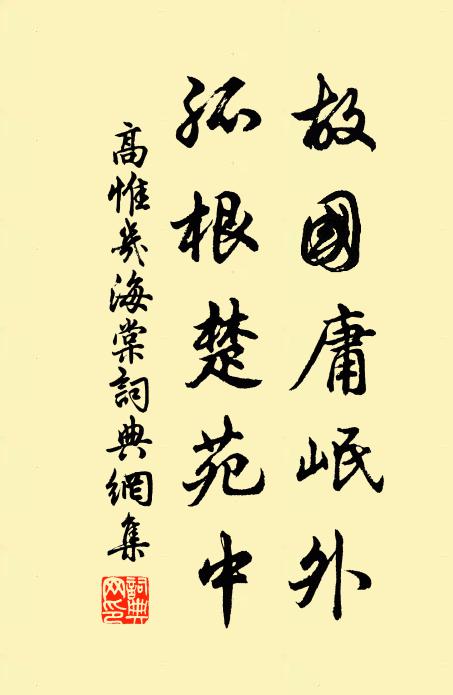 故國庸岷外
孤根楚苑中
高惟幾海棠詞典網集
詞典網印